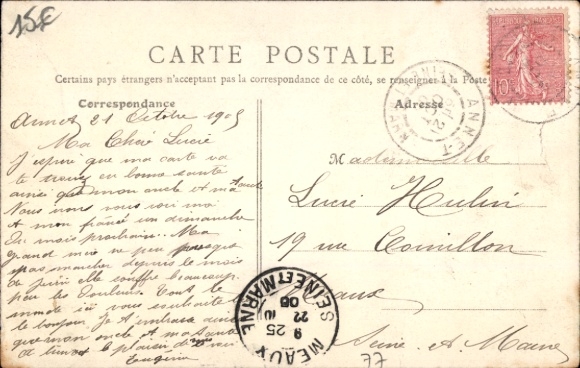 15€
CARTE POSTALE
Certains pays étrangers n'acceptant pas la correspondance de ce côté, se renseigner à la Poste
Correspondance
Adresse
10
ANNET
Annet 21 Octobre 1905
Ma Chère Lucie
J'espère que ma carte va
te trouver en bonne santé
ainsi que mon oncle et ma tante
Nous irons vous voir moi
et mon fiancé un dimanche
du mois prochain. Ma
grand mère ne peu presque
pas marcher depuis le mois
de juin elle souffre beaucoup
par les douleurs. Tout le
monde ici vous souhaite
le bonjour. Je t'embrasse ainsi
que mon oncle et ma tante
plaisir de
Mademoiselle
Lucie Hulin
19 rue Cornillon
Meaux
Seine et Marne
MEAUX
SEINE ET MARNE
9 25
22
10
77